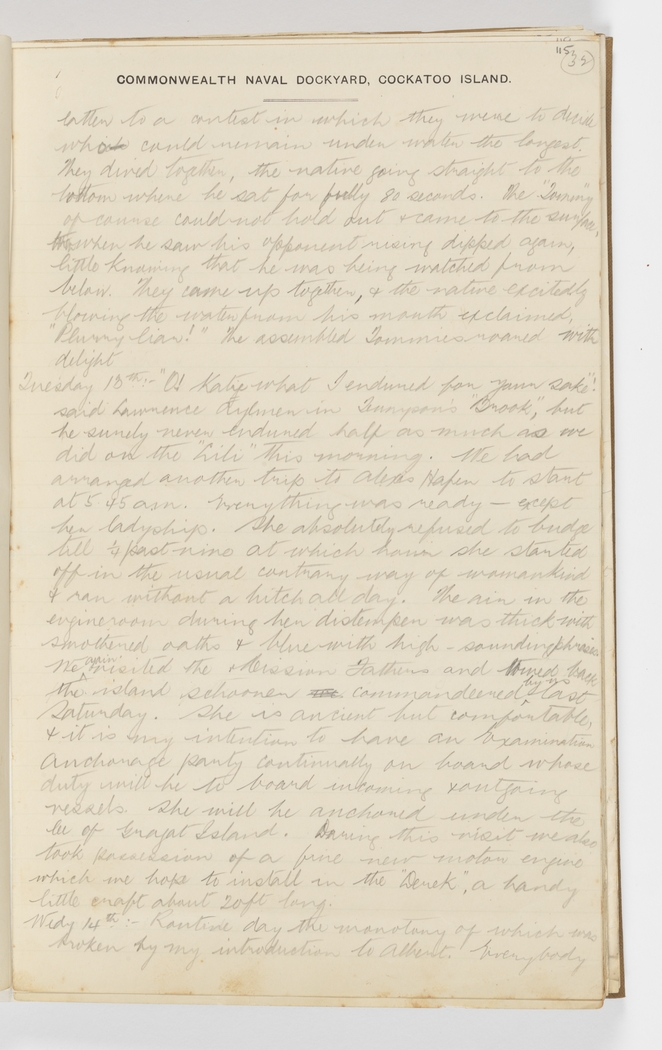 115
35
COMMONWEALTH NAVAL DOCKYARD, COCKATOO ISLAND.
latter to a contest in which they were to decide
who could remain under water the longest.
They dived together, the native going straight to the
bottom where he sat for fully 80 seconds. The "Tommy"
of course could not hold out & came to the surface,
when he saw his opponent rising dipped again,
little knowing that he was being watched from
below. They came up together, & the native excitedly
blowing the water from his mouth exclaimed,
"Plurry liar!" The assembled Tommies roared with
delight
Tuesday 13th:- "O! Katie what I endured for your sake"!
said Lawrence Aylmer in Tennyson's "Brook", but
he surely never endured half as much as we
did on the "Lili" this morning. We had
arranged another trip to Alexis Hafen to start
at 5.45 am. Everything was ready – except
her ladyship. She absolutely refused to budge
till ½ past nine at which hour she started
off in the usual contrary way of womankind
& ran without a hitch all day. The air in the
engineroom during her distemper was thick with
smothered oaths & blue with high-sounding phrases
We again visited the Mission Fathers and towed back
the island schooner commandeered by us last
Saturday. She is ancient but comfortable,
& it is my intention to have an Examination
Anchorage party continually on board whose
duty will be to board incoming & outgoing
vessels. She will be anchored under the
lee of Gragat Island. During this visit we also
took possession of a fine new motor engine
which we hope to install in the "Derek", a handy
little craft about 20ft long.
Wedy 14th:- Routine day the monotony of which was
broken by my introduction to Albert. Everybody